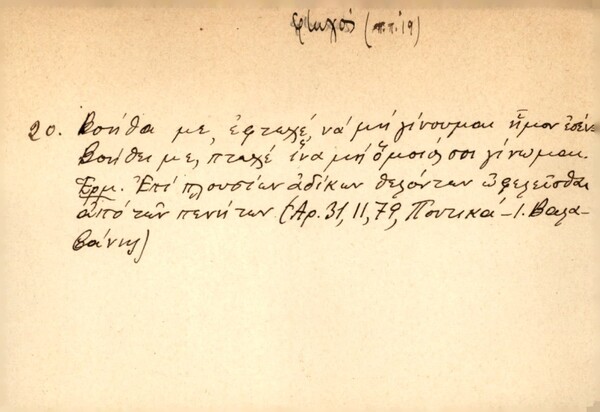 φτωχός (π.π. 19)
20. Βοήθα με, ἐφταχέ, νά μή γίνουμαι ἥμον ἐσέν
Βοήθει με, πτωχέ ἵνα μή ὅμοιός σοι γίνωμαι.
Ἑρμ. Ἐπί πλουσίων ἀδίκων θελόντων ὠφελεῖσθαι
ἀπό τῶν πενήτων (Ἀρ. 31, 11, 79, Ποντικά - Ι. Βαλα-
βάνης)